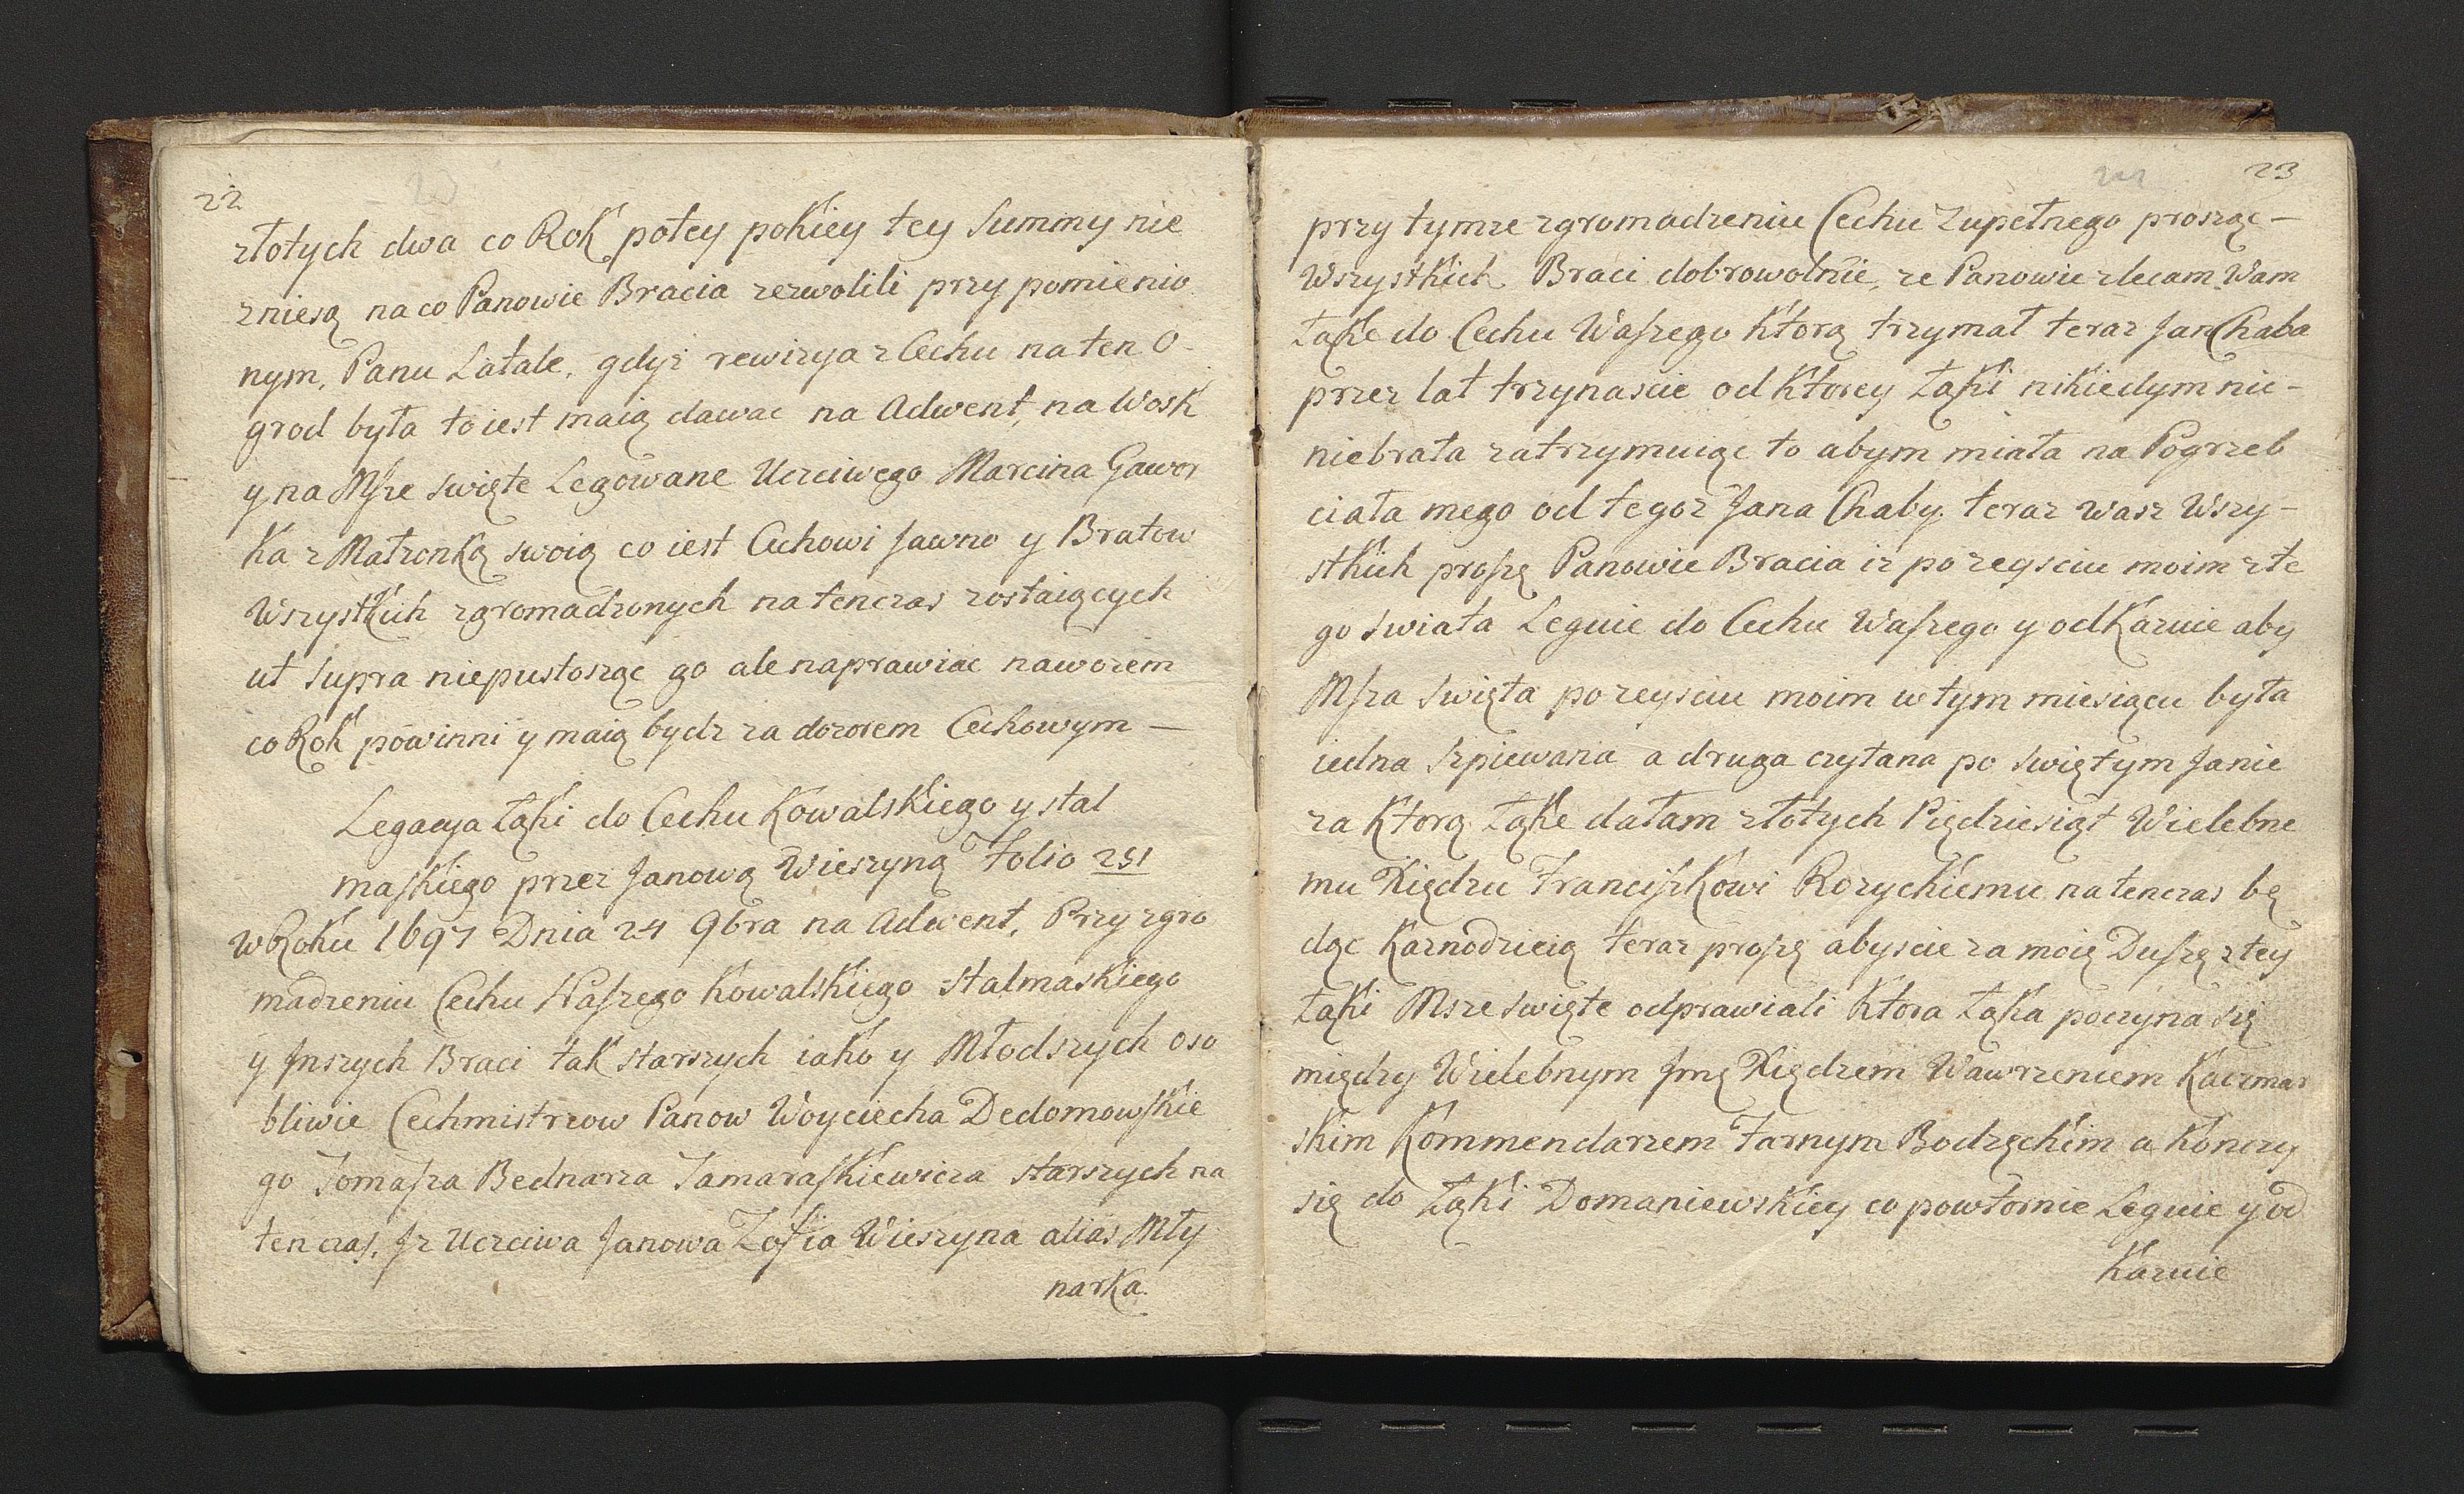 22
złotych dwa co Rok potey pokiey tey Summy nie
zniesą na co Panowie Bracia zezwolili przy pomienio
nym, Panu Łatale, gdyż rewizya z Cechu na ten O-
grod była to iest maią dawac na Adwent, na Wosk
y na Msze swięte Legowane Uczciwego Marcina Gawor
ka z Małżonką swoią co iest Cechowi Jawno y Bratow
Wszystkich zgromadzonych na tenczas zostaiących
ut supra niepustosząc go ale naprawiac nawozem
co Rok powinni y maią bydz za dozorem Cechowym —
Legacya Łąki do Cechu Kowalskiego y stal
maskiego przez Janową Wieszyną Folio 251
w Roku 1697 Dnia 24 9bra na Adwent, Przy zgro
madzeniu Cechu Naszego Kowalskiego stalmaskiego
y Jnszych Braci tak starszych iako y Młodszych oso
bliwie Cechmistrzow Panow Woyciecha Dedomowskie
go Tomasza Bednarza Tamaraskiewicza starszych na
ten czas, Jz Uczciwa Janowa Zofia Wieszyna alias Mły
narka.
23
przy tymze zgromadzeniu Cechu zupełnego prosząc —
Wszystkich Braci dobrowolnie, ze Panowie zlecam Wam
Łąke do Cechu Waszego ktorą trzymał teraz Jan Chaba
przez lat trzynascie od ktorey Łąki nikiedym nic-
niebrała zatrzymuiąc to abym miała na Pogrzeb
ciała mego od tegoz Jana Chaby teraz wasz Wszy-
stkich proszę Panowie Bracia iz po zeysciu moim z te
go swiata Leguie do Cechu Waszego y odKazuie aby
Msza swięta po zeysciu moim w tym miesiącu była
iedna spiewana a druga czytana po swiętym Janie
za ktorą Łąke dałam złotych Pięcdziesiąt Wielebne
mu Xiędzu Franciszkowi Rozyckiemu na tenczas bę
dąc Kaznodzieią teraz proszę abyscie za moię Duszę z tey
Łąki Msze swięte odprawiali ktora Łąka poczyna się
między Wielebnym Jmę Xiędzem Wawrzencem Kaczmar
skim Kommendarzem Farnym Bodzęckim a konczy
się do Łąki Domaniewskiey co powtornie Leguie y od
kazuie